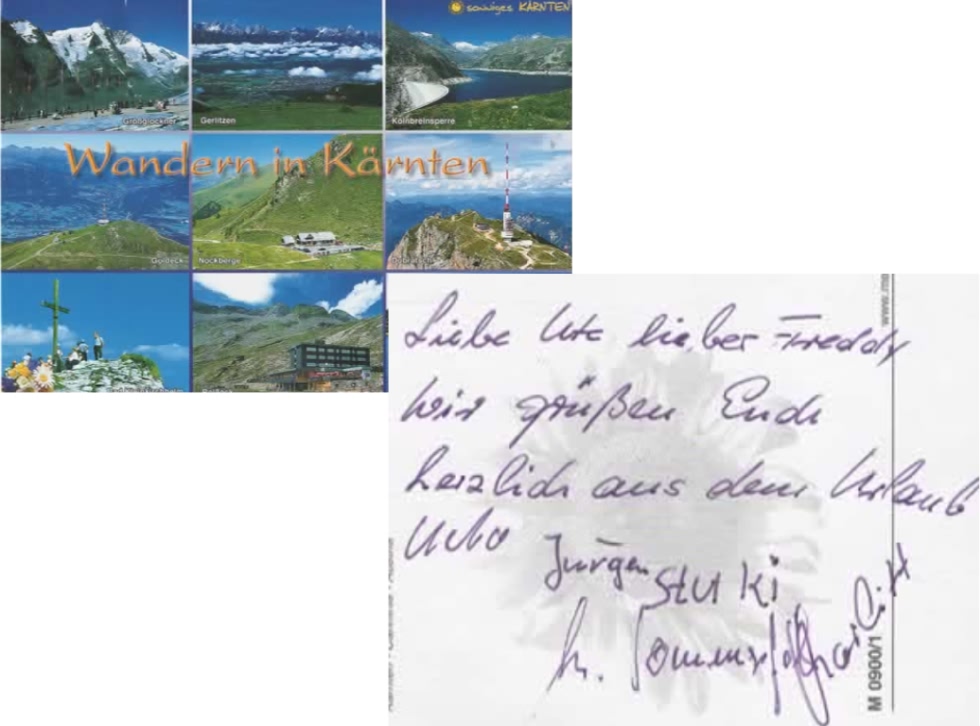 sonniges KÄRNTEN
Großglockner
Gerlitzen
Kölnbreinsperre
Wandern in Kärnten
Goldeck
Nockberge
Dobratsch
Liebe Ute lieber Freddy
wir grüßen Euch
herzlich aus dem Urlaub
Jürgen
M 0900/1